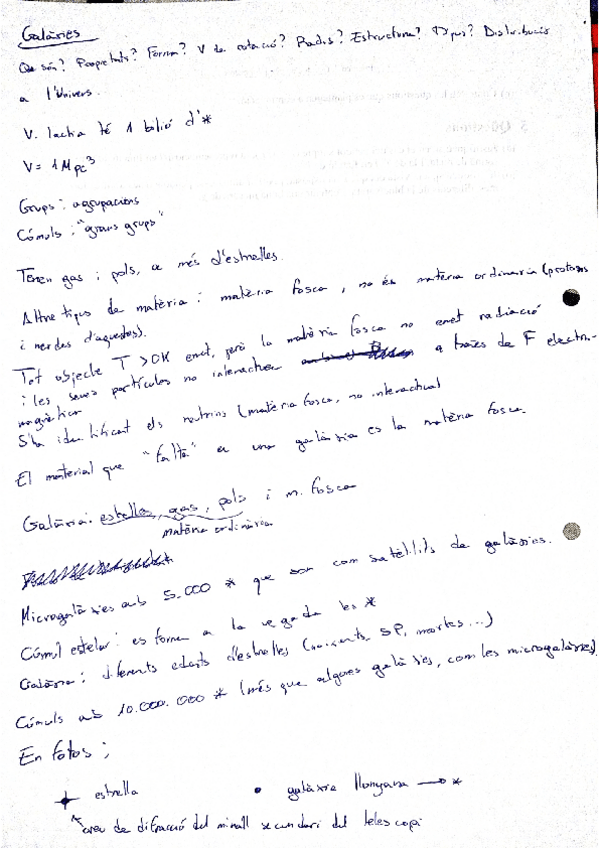 Galàxies
Que són? Propietats? Forma? V de rotació? Radis? Estructura? Tipus? Distribució
a l'Univers.
V. lactia té 1 bilió d'*
V = 1 Mpc³
Grups: agrupacions
Cúmuls: "grans grups"
Tenen gas i pols, a més d'estrelles.
Altre tipus de matèria: matèria fosca, no és matèria ordinaria (protons
i merdas d'aquestas).
Tot objecte T > 0K emet, però la matèria fosca no emet radiació
i les seves partícules no interactuen a través de F electro-
magnètica
S'ha identificat els neutrins (matèria fosca, no interactua)
El material que "falta" a una galàxia es la matèria fosca.
Galàxia: estrelles, gas, pols i m. fosca
matèria ordinària
Microgalàxies amb 5.000 * que son com satèl·lits de galàxies.
Cúmul estelar: es formen a la vegada les *
Galàxia: diferents edats d'estrelles (naixents, SP, mortes...)
Cúmuls amb 10.000.000 * (més que algunes galàxies, com les microgalàxies).
En fotos:
estrella
galàxia llunyana → *
creu de difracció del mirall secundari del telescopi